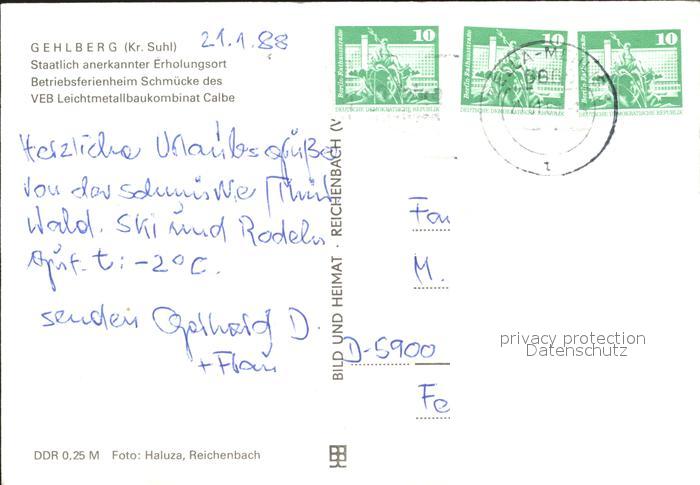 GEHLBERG (Kr. Suhl)
Staatlich anerkannter Erholungsort
Betriebsferienheim Schmücke des
VEB Leichtmetallbaukombinat Calbe
21.1.88
Herzliche Urlaubsgrüße
von der Schmücke / Thür
Wald. Ski und Rodeln
t: -2°C.
senden Gerhard D.
+ Frau
DDR 0,25 M Foto: Haluza, Reichenbach
BILD UND HEIMAT · REICHENBACH (V
10
Berlin, Rathausstraße
DEUTSCHE DEMOKRATISCHE REPUBLIK
10
Berlin, Rathausstraße
DEUTSCHE DEMOKRATISCHE REPUBLIK
10
Berlin, Rathausstraße
DEUTSCHE DEMOKRATISCHE REPUBLIK
Fam
M.
D-5900
Fe
privacy protection
Datenschutz